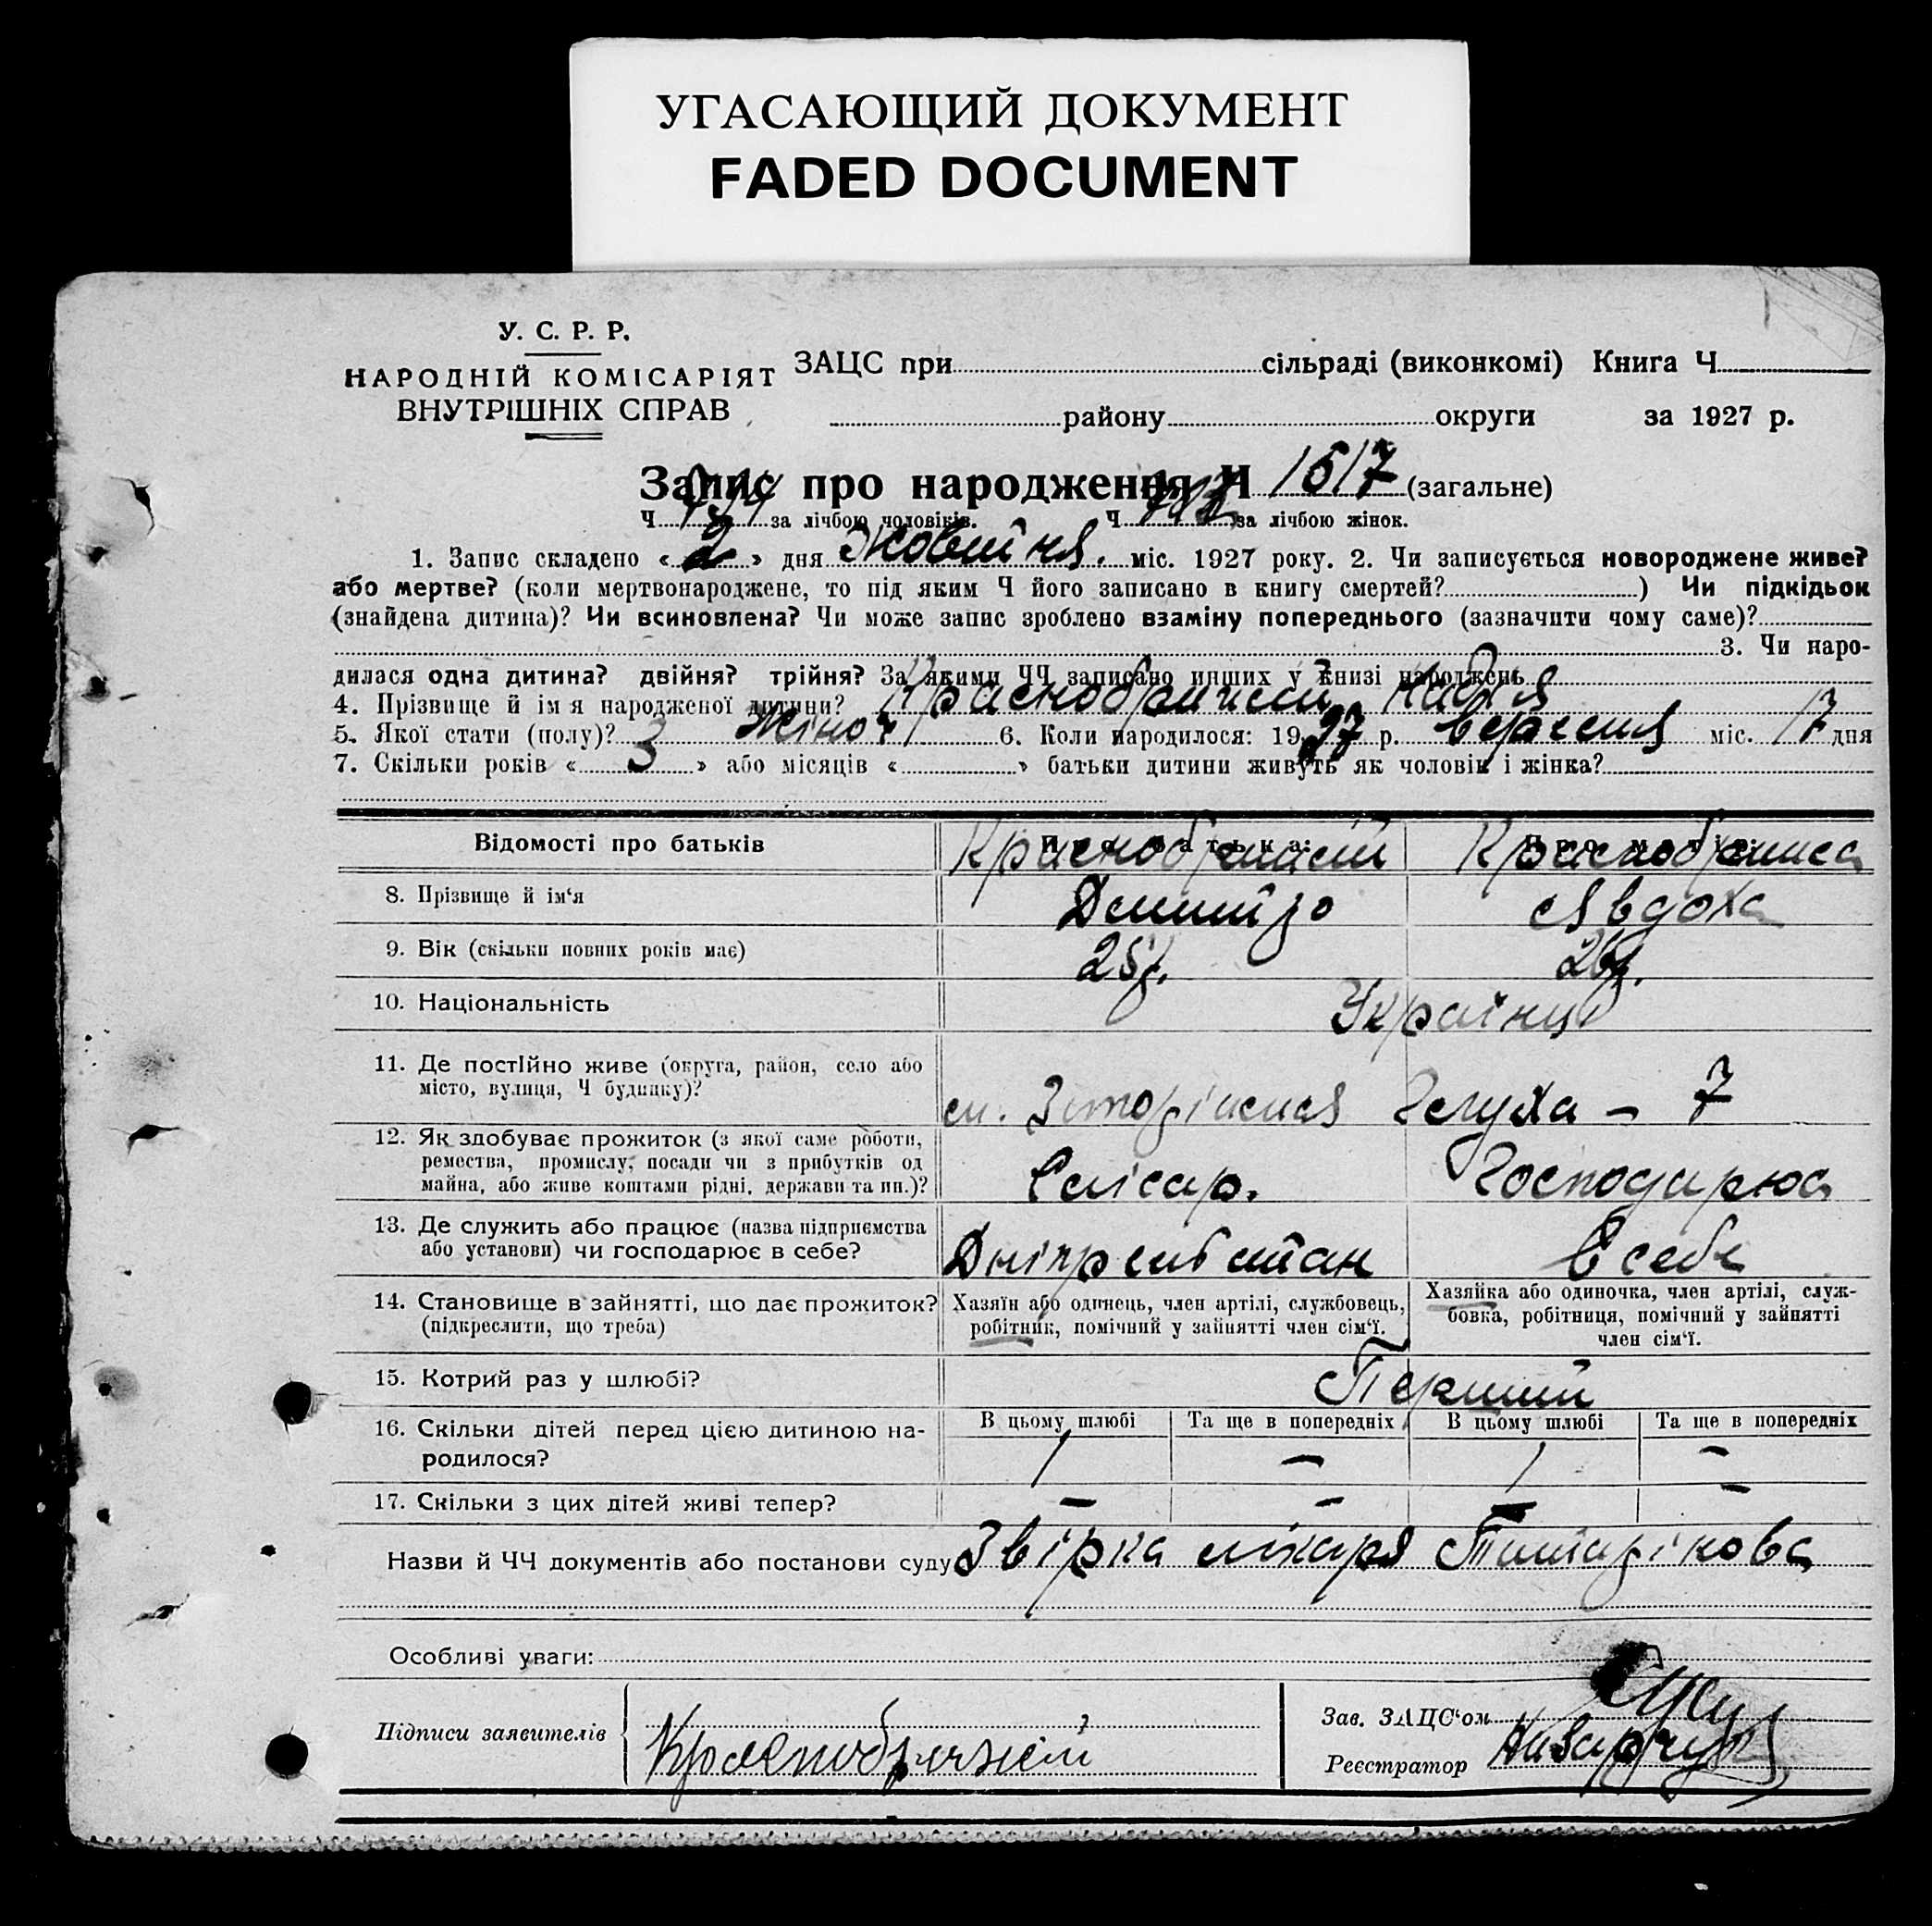 УГАСАЮЩИЙ ДОКУМЕНТ
FADED DOCUMENT
У. С. Р. Р.
НАРОДНІЙ КОМІСАРІЯТ
ВНУТРІШНІХ СПРАВ
ЗАЦС при сільраді (виконкомі) Книга Ч
району округи за 1927 р.
Запис про народження Ч 1617 (загальне)
Ч за лічбою чоловіків. Ч за лічбою жінок.
1. Запис складено « 2 » дня Жовтня. міс. 1927 року. 2. Чи записується новороджене живе?
або мертве? (коли мертвонароджене, то під яким Ч його записано в книгу смертей? ) Чи підкідьок
(знайдена дитина)? Чи всиновлена? Чи може запис зроблено взаміну попереднього (зазначити чому саме)?
3. Чи наро-
дилася одна дитина? двійня? трійня? За якими ЧЧ записано инших у книзі народжень
4. Прізвище й ім я народженої дитини? Надія
5. Якої стати (полу)? жіноч 6. Коли народилося: 1927 р. вересня міс. 17 дня
7. Скільки років « 3 » або місяців « » батьки дитини живуть як чоловік і жінка?
Відомості про батьків Про батька: Про матір:
8. Прізвище й ім‘я Дмитро Явдоха
9. Вік (скільки повних років має) 25р. 26р.
10. Національність Українці
11. Де постійно живе (округа, район, село або
місто, вулиця, Ч будинку)? 7
12. Як здобуває прожиток (з якої саме роботи,
ремества, промислу, посади чи з прибутків од
майна, або живе коштами рідні, держави та ин.)? Слісар. Господарює
13. Де служить або працює (назва підприємства
або установи) чи господарює в себе? В себе
14. Становище в зайнятті, що дає прожиток?
(підкреслити, що треба)
Хазяїн або одинець, член артілі, службовець,
робітник, помічний у зайнятті член сім‘ї.
Хазяйка або одиночка, член артілі, служ-
бовка, робітниця, помічний у зайнятті
член сім‘ї.
15. Котрий раз у шлюбі? Перший
16. Скільки дітей перед цією дитиною на-
родилося?
В цьому шлюбі Та ще в попередніх В цьому шлюбі Та ще в попередніх
1 — 1 —
17. Скільки з цих дітей живі тепер? — — — —
Назви й ЧЧ документів або постанови суду лікаря
Особливі уваги:
Підписи заявителів
Зав. ЗАЦС‘ом
Реєстратор